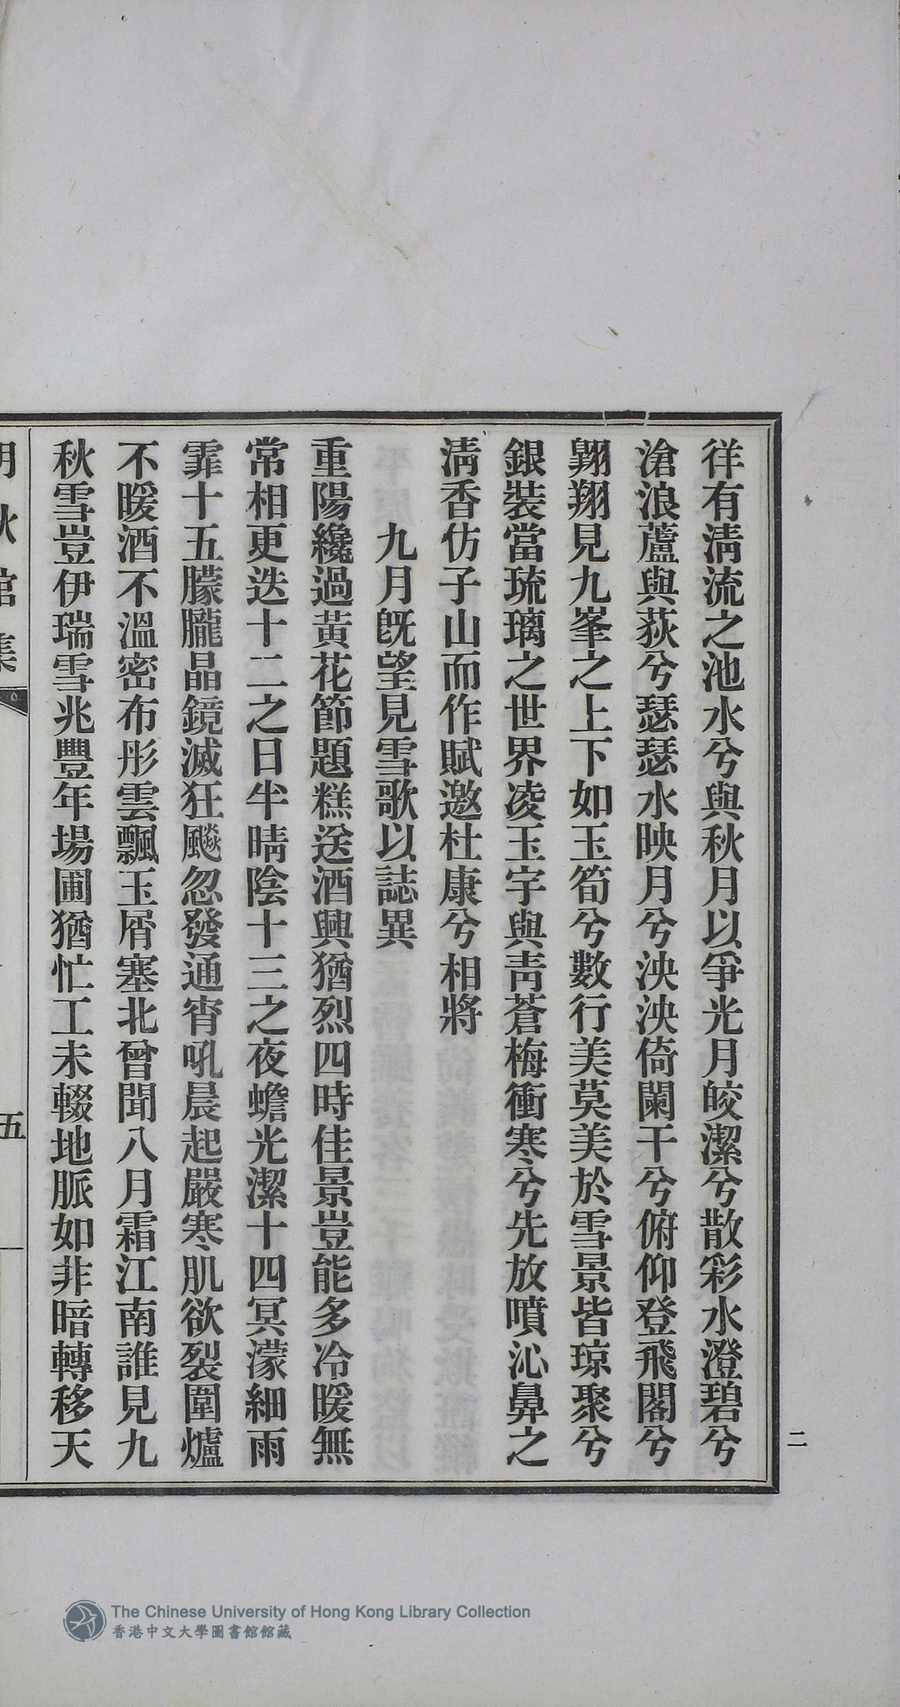 徉有淸流之池水兮與秋月以爭光月皎潔兮散彩水澄碧兮
滄浪蘆與荻兮瑟瑟水映月兮泱泱倚闌干兮俯仰登飛閣兮
翺翔見九峯之上下如玉筍兮數行美莫美於雪景皆琼聚兮
銀裝當琉璃之世界凌玉宇與靑蒼梅衝寒兮先放噴沁鼻之
淸香仿子山而作賦邀杜康兮相將
九月旣望見雪歌以誌異
重陽纔過黃花節題糕送酒興猶烈四時佳景豈能多冷暖無
常相更迭十二之日半晴陰十三之夜蟾光潔十四冥濛細雨
霏十五朦朧晶鏡滅狂飈忽發通宵吼晨起嚴寒肌欲裂圍爐
不暖酒不溫密布彤雲飄玉屑塞北曾聞八月霜江南誰見九
秋雪豈伊瑞雪兆豐年場圃猶忙工未輟地脈如非暗轉移天
秋館集
五
二
The Chinese University of Hong Kong Library Collection
香港中文大學圖書館館藏